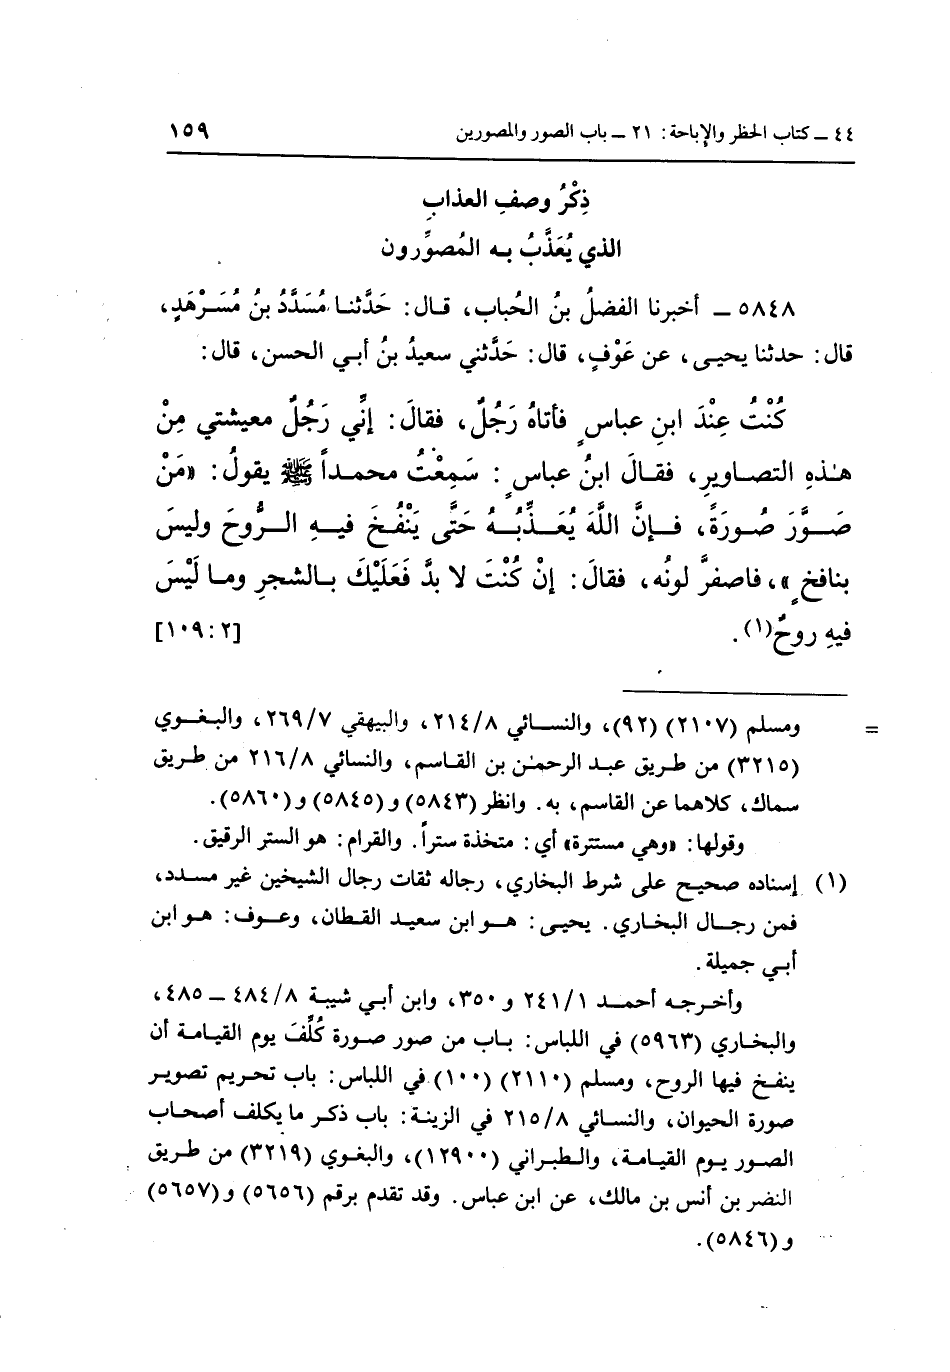 ٤٤ ــ كتاب الحظر والإباحة: ٢١ ــ باب الصور والمصورين ١٥٩
ذِكْرُ وصفِ العذابِ
الذي يُعَذَّبُ به المُصوِّرون
٥٨٤٨ ــ أخبرنا الفضلُ بنُ الحُباب، قال: حَدَّثنا مُسَدَّدُ بنُ مُسَرْهَدٍ،
قال: حدثنا يحيى، عن عَوْفٍ، قال: حَدَّثني سعيدُ بنُ أبي الحسن، قال:
كُنْتُ عِنْدَ ابنِ عباسٍ فأتاهُ رَجُلٌ، فقالَ: إنِّي رَجُلٌ معيشتي مِنْ
هذهِ التصاويرِ، فقالَ ابنُ عباسٍ: سَمِعْتُ محمداً ﷺ يقولُ: «مَنْ
صَوَّرَ صُورَةً، فإنَّ اللَّهَ يُعَذِّبُهُ حَتَّى يَنْفُخَ فيهِ الرُّوحَ وليسَ
بنافخٍ»، فاصفرَّ لونُه، فقالَ: إنْ كُنْتَ لا بدَّ فَعَلَيْكَ بالشجرِ وما لَيْسَ
فيهِ روحٌ(١). [٢: ١٠٩]
= ومسلم (٢١٠٧) (٩٢)، والنسائي ٢١٤/٨، والبيهقي ٢٦٩/٧، والبغوي
(٣٢١٥) من طريق عبد الرحمٰن بن القاسم، والنسائي ٢١٦/٨ من طريق
سماك، كلاهما عن القاسم، به. وانظر (٥٨٤٣) و(٥٨٤٥) و(٥٨٦٠).
وقولها: «وهي مستترة» أي: متخذة ستراً. والقرام: هو الستر الرقيق.
(١) إسناده صحيح على شرط البخاري، رجاله ثقات رجال الشيخين غير مسدد،
فمن رجال البخاري. يحيى: هو ابن سعيد القطان، وعوف: هو ابن
أبي جميلة.
وأخرجه أحمد ٢٤١/١ و ٣٥٠، وابن أبي شيبة ٤٨٤/٨ ــ ٤٨٥،
والبخاري (٥٩٦٣) في اللباس: باب من صور صورة كُلِّفَ يوم القيامة أن
ينفخ فيها الروح، ومسلم (٢١١٠) (١٠٠) في اللباس: باب تحريم تصوير
صورة الحيوان، والنسائي ٢١٥/٨ في الزينة: باب ذكر ما يكلف أصحاب
الصور يوم القيامة، والطبراني (١٢٩٠٠)، والبغوي (٣٢١٩) من طريق
النضر بن أنس بن مالك، عن ابن عباس. وقد تقدم برقم (٥٦٥٦) و(٥٦٥٧)
و(٥٨٤٦).